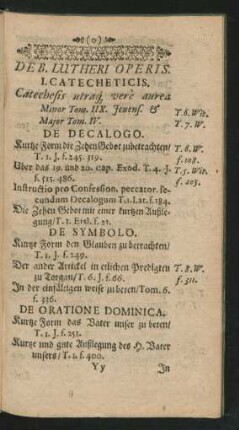 (o)
DE B. LUTHERI OPERIS.
I. CATECHETICIS.
Catechesis utraq; verè aurea
Minor Tom. IIX. Jenens. & T. 6. Wit.
Major Tom. IV. T. 7. W.
DE DECALOGO.
Kurtze Form die Zehen Gebot zubetrachten/ T. 6. W.
T. 1. J. f. 245. 319. f. 108.
Uber das 19. und 20. cap. Exod. T. 4. J. T. 5. Wit.
f. 515. 486. f. 205.
Instructio pro Confession. peccator. se-
cundum Decalogum T. 1. Lat. f. 184.
Die Zehen Gebot mit einer kurtzen Außle-
gung/ T. 1. Eisl. f. 51.
DE SYMBOLO.
Kurtze Form den Glauben zu betrachten/
T. 1. J. f. 249.
Der ander Artickel in etlichen Predigten T. 8. W.
zu Torgau/ T. 6. J. f. 66. f. 311.
In der einfältigen weise zu beten/ Tom. 6.
f. 336.
DE ORATIONE DOMINICA.
Kurtze Form das Vater unser zu beten/
T. 1. J. f. 251.
Kurtze und gute Außlegung des H. Vater
unsers/ T. 1. f. 400.
Yy In